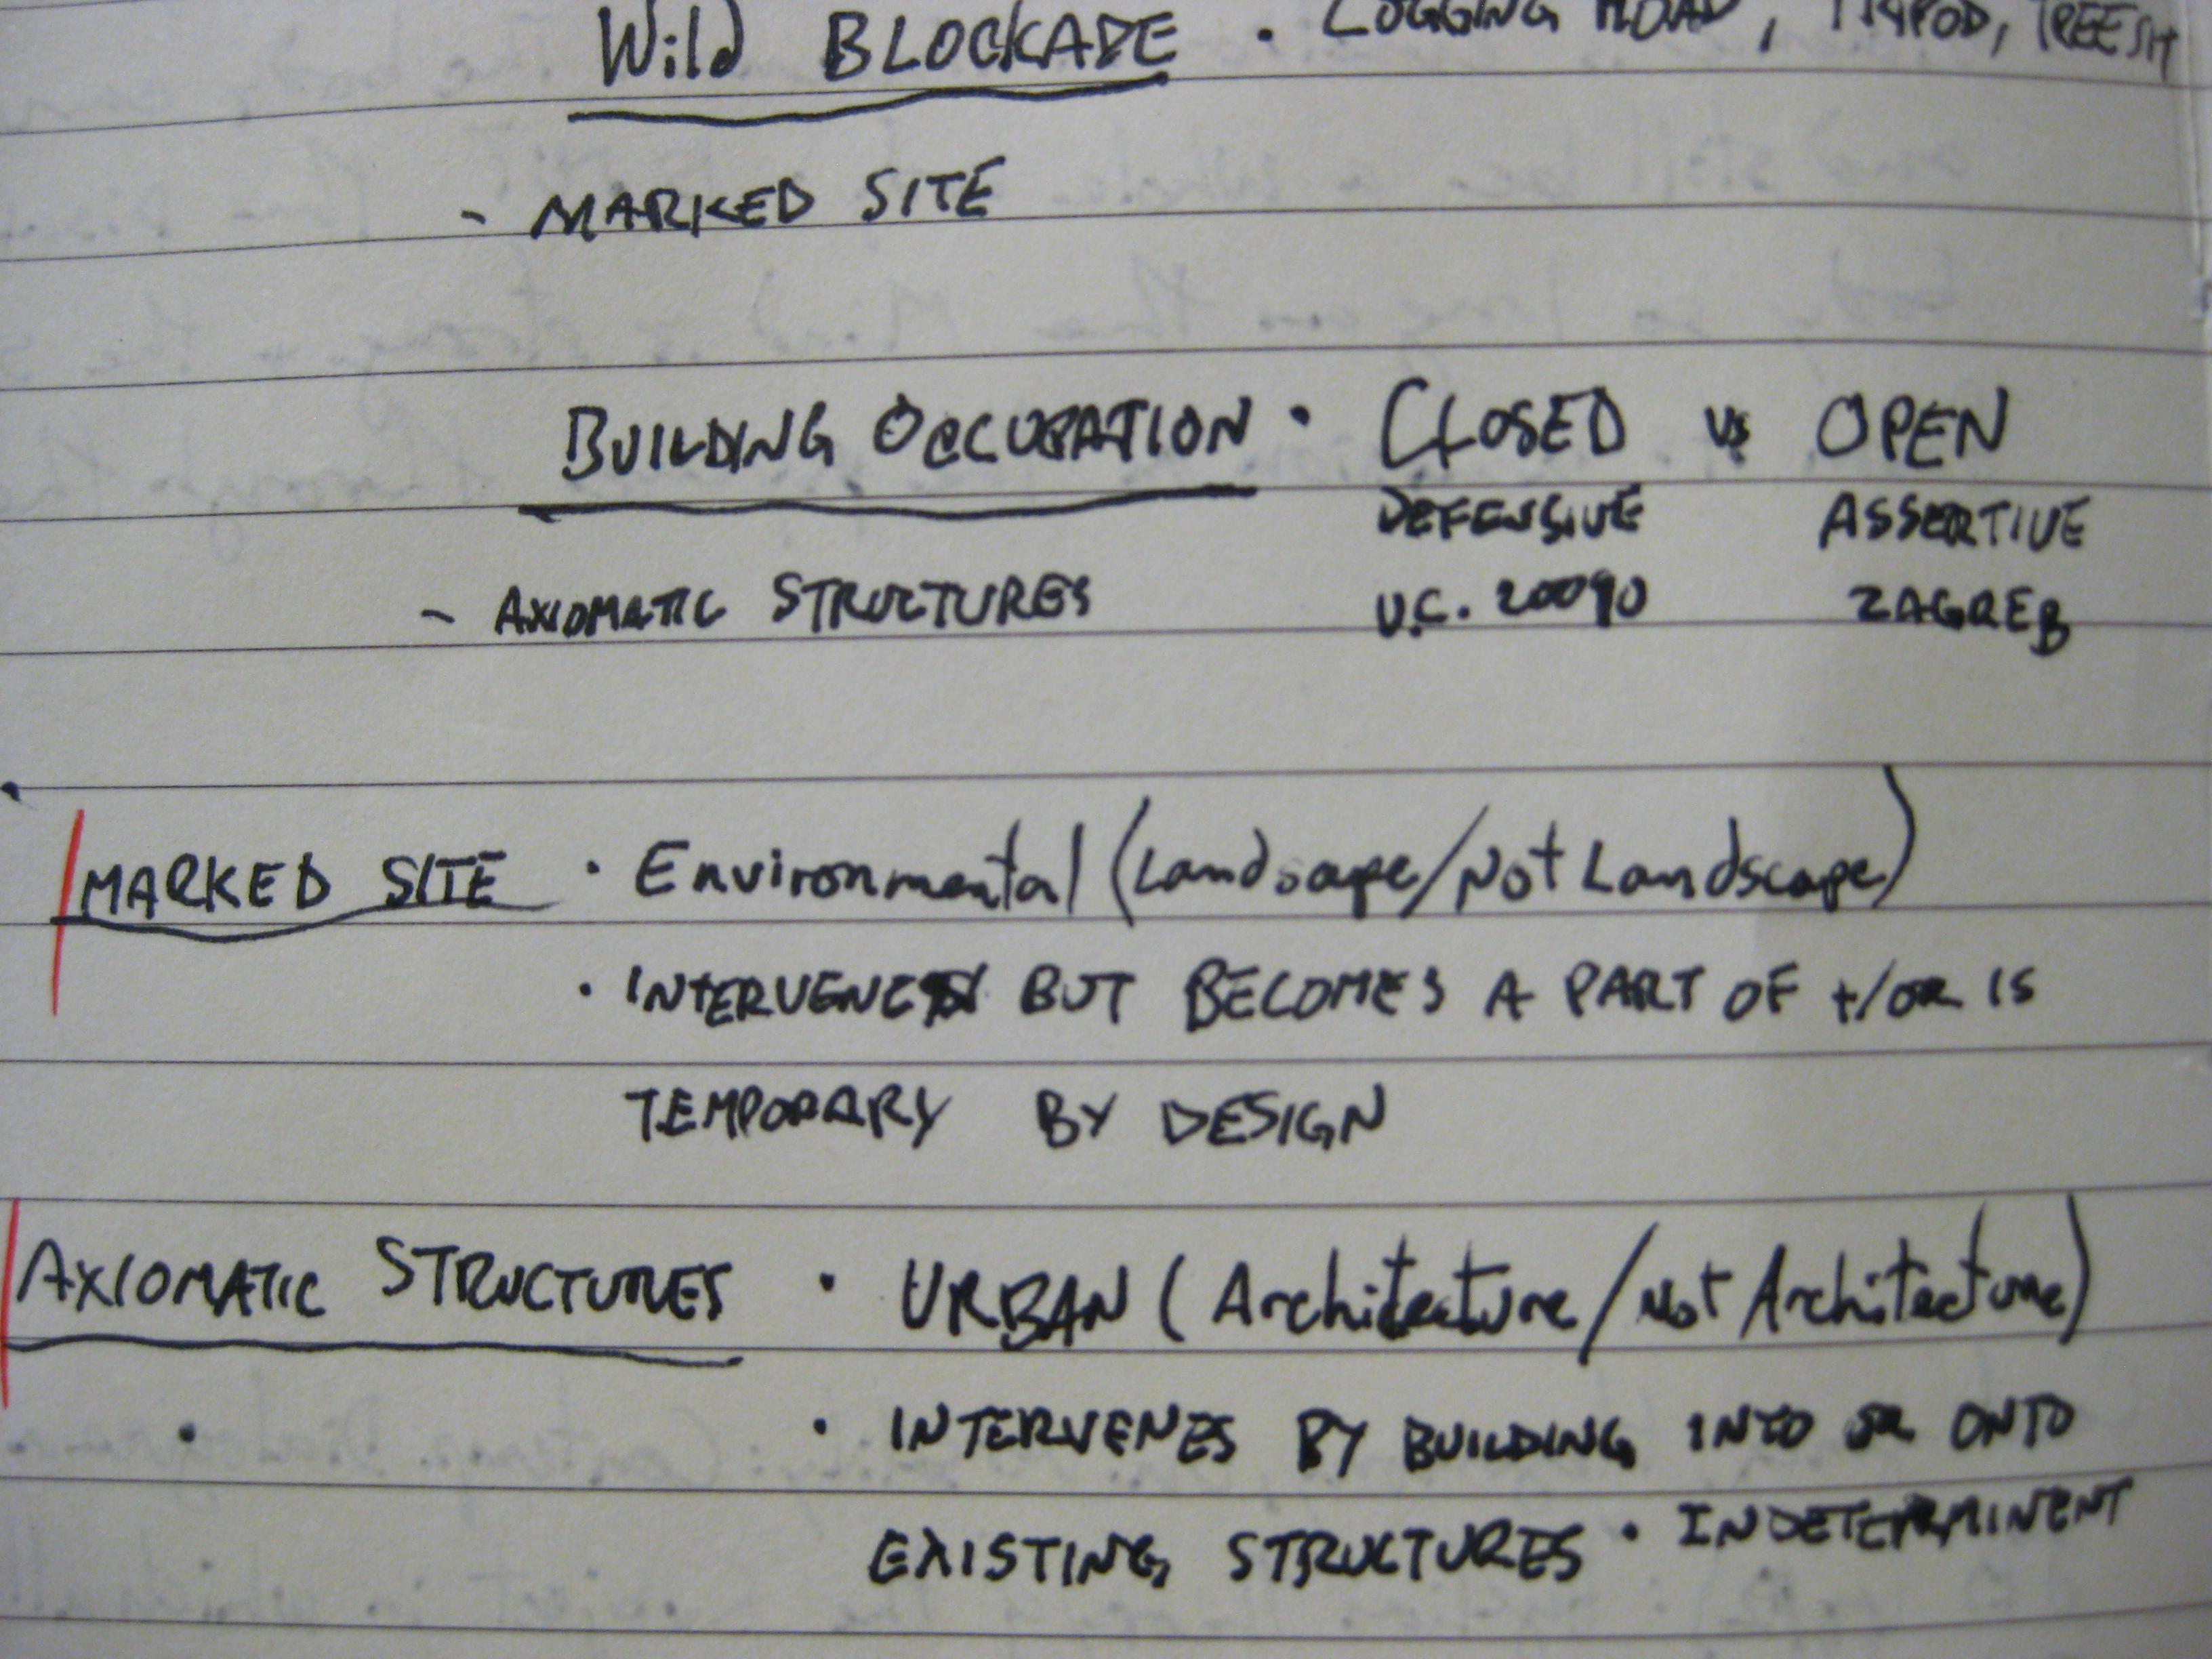 Wild BLOCKADE · LOGGING ROAD, TRIPOD, TREESIT
- MARKED SITE
BUILDING OCCUPATION · CLOSED vs OPEN
DEFENSIVE ASSERTIVE
- AXIOMATIC STRUCTURES U.C. ZAGREB
MARKED SITE · Environmental (Landscape/Not Landscape)
· BUT BECOMES A PART OF +/OR IS
TEMPORARY BY DESIGN
AXIOMATIC STRUCTURES · URBAN (Architecture/Not Architecture)
· INTERVENES BY BUILDING INTO OR ONTO
EXISTING STRUCTURES · INDETERMINENT